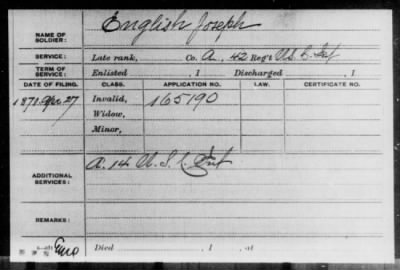 NAME OF SOLDIER: English Joseph
SERVICE: Late rank, Co. A, 42 Reg't U.S.C. Inf
TERM OF SERVICE: Enlisted , 1 Discharged , 1
DATE OF FILING. CLASS. APPLICATION NO. LAW. CERTIFICATE NO.
1871 Apr 27 Invalid, 165190
Widow,
Minor,
ADDITIONAL SERVICES: A. 14 U.S.C. Inf
REMARKS:
Died , 1 , at